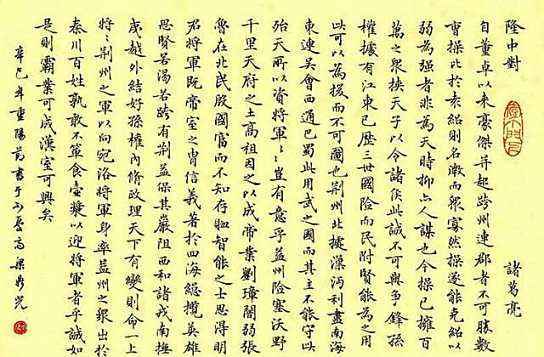 隆中對 諸葛亮
自董卓以來豪傑并起跨州連郡者不可勝數
曹操比於袁紹則名微而眾寡然操遂能克紹以
弱為強者非為天時抑亦人謀也今操已擁百
萬之眾挾天子以令諸侯此誠不可與爭鋒孫
權據有江東已歷三世國險而民附賢能為之用
此可以為援而不可圖也荆州北據漢沔利盡南海
東連吳會西通巴蜀此用武之國而其主不能守此
殆天所以資將軍將軍豈有意乎益州險塞沃野
千里天府之土高祖因之以成帝業劉璋闇弱張
魯在北民殷國富而不知存恤智能之士思得明
君將軍既帝室之胄信義著於四海總攬英雄
思賢若渴若跨有荆益保其巖阻西和諸戎南撫
夷越外結好孫權內修政理天下有變則命一上
將將荆州之軍以向宛洛將軍身率益州之眾出於
秦川百姓孰敢不簞食壺漿以迎將軍者乎誠如
是則霸業可成漢室可興矣
辛巳年重陽節書于